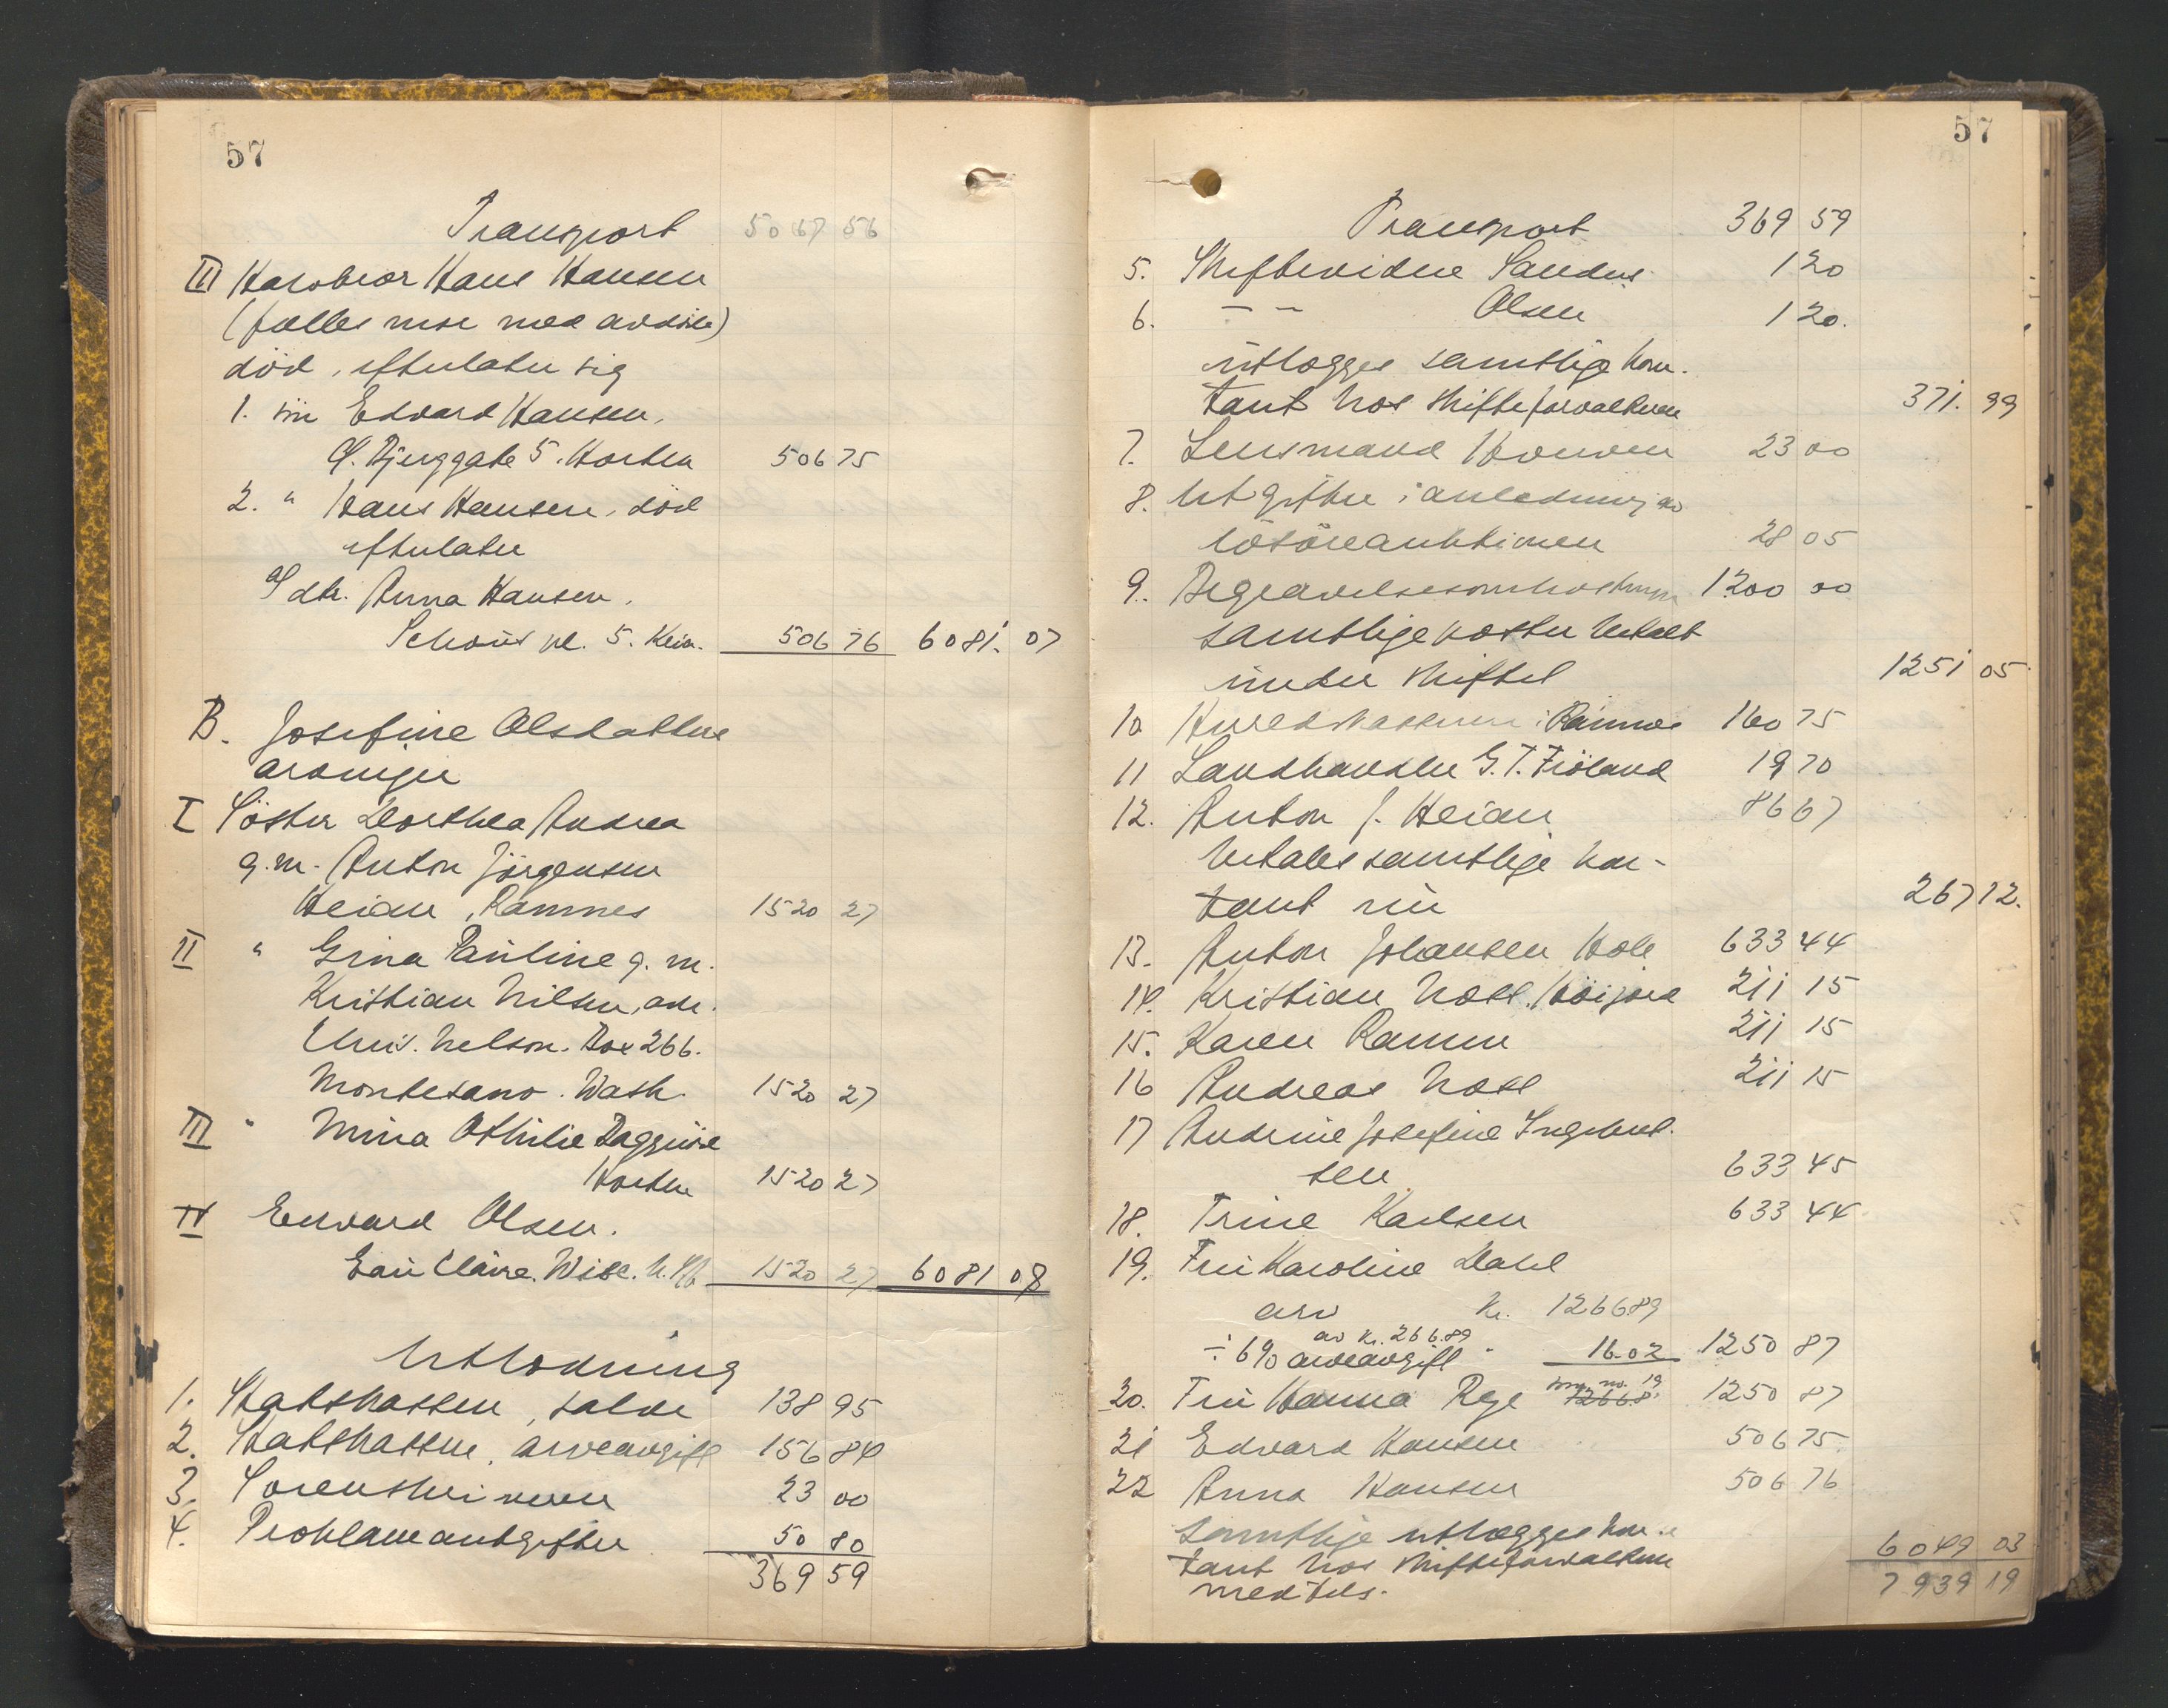 57
Transport 5067 56
III Halvbror Hans Hansen
(fælles mor med avdøde)
död, efterlater sig
1. sön Edvard Hansen,
Bjerggate 5. Horten 506 75
2. " Hans Hansen, död
efterlater
a) dtr. Anna Hansen,
Schous pl. 5. Kra. 506 76 6081. 07
B. Josefine Olsdatters
arvinger
I Söster Dorthea Andrea
g.m. Anton Jörgensen
Heian, Ramnes 1520 27
II " Gina Pauline g. m.
Kristian Nilsen, adr.
Chris. Nelson. Box 266.
Montesano. Wash. 1520 27
III " Mina Othilie Baggeröe
Horten 1520 27
IV Edvard Olsen.
Eau Claire. Wisc. 1520 27 6081 08
Utlodning
1. Statskassen, salær 138 95
2. Statskassen, arveavgift 156 84
3. Sorenskriveren 23 00
4. Proklamautgifter 50 80
369 59
57
Transport 369 59
5. Skiftevidne Sandnes 1 20
6. — — Olsen 1 20.
utlægges samtlige kon-
tant hos skifteforvalteren 371. 99
7. Lensmand Horven 23 00
8. Utgifter i anledning av
lösöreauktionen 28 05
9. Begravelsesomkostninger 1200 00
samtlige poster betalt
under skiftet 1251 05
10. Herredskassereren i Ramnes 160 75
11 Landhandler G. T. Fröland 19 70
12. Anton J. Heian 86 67
betales samtlige kon-
tant nu 267 12.
13. Anton Johansen Hole 633 44
14. Kristian Næss, Höijord 211 15
15. Karen Ramm 211 15
16 Andreas Næss 211 15
17 Andrine Josefine Ingebret-
sen 633 45
18. Trine Karlsen 633 44
19. Fru Karoline Dahl
arv kr. 1266.89
av kr. 266.89
÷ 6% arveavgift " 16.02 1250 87
20. Fru Hanna Rege som no. 19 1266.8 1250 87
21 Edvard Hansen 506 75
22 Anna Hansen 506 76
Samtlige utlægges kon-
tant hos skifteforvalteren 6049 03
med tils. 7939 19